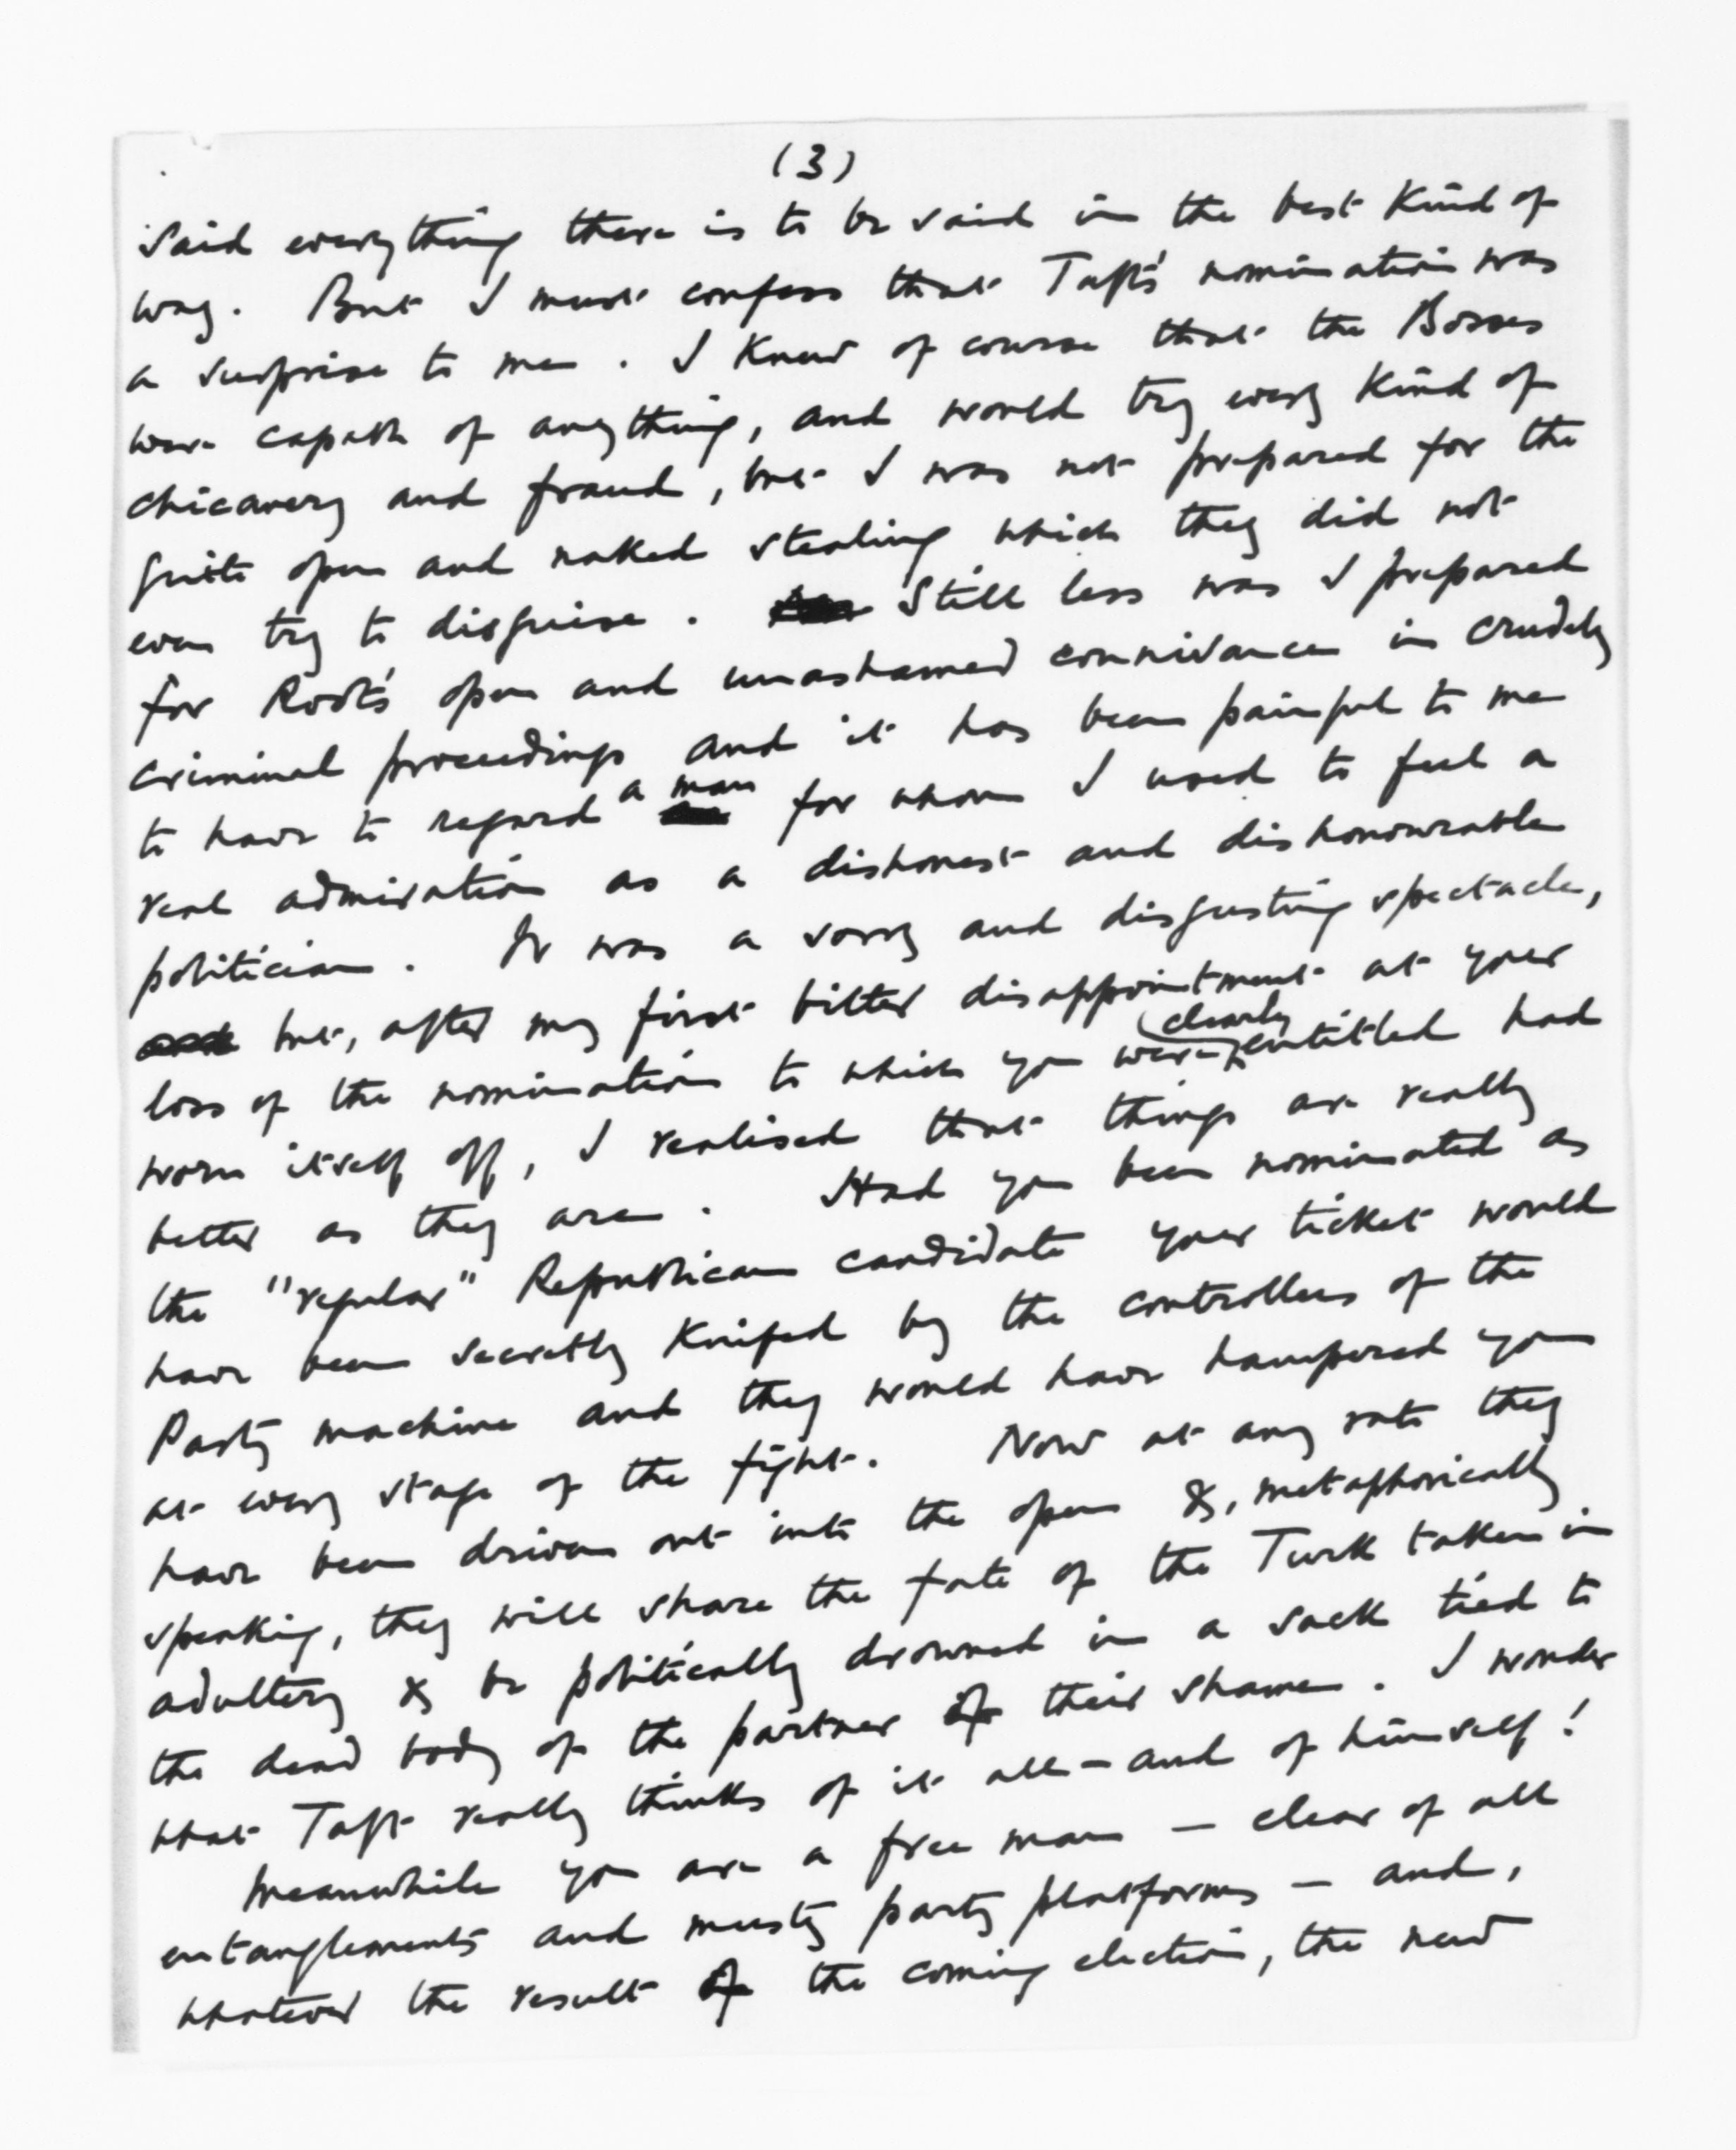 (3)
said everything there is to be said in the best kind of
way. But I must confess that Taft's nomination was
a surprise to me. I knew of course that the Bosses
were capable of anything, and would try every kind of
chicanery and fraud, but I was not prepared for the
quite open and naked stealing which they did not
even try to disguise. Still less was I prepared
for Root's open and unashamed connivance in crudely
criminal proceedings and it has been painful to me
to have to regard a man for whom I used to feel a
real admiration as a dishonest and dishonourable
politician. It was a sorry and disgusting spectacle,
but, after my first bitter disappointment at your
loss of the nomination to which you were clearly entitled had
worn itself off, I realised that things are really
better as they are. Had you been nominated as
the "regular" Republican candidate your ticket would
have been secretly knifed by the controllers of the
Party machine and they would have hampered you
at every stage of the fight. Now at any rate they
have been driven out into the open &, metaphorically
speaking, they will share the fate of the Turk taken in
adultery & be politically drowned in a sack tied to
the dead body of the partner of their shame. I wonder
what Taft really thinks of it all – and of himself!
Meanwhile you are a free man – clear of all
entanglements and musty party platforms – and,
whatever the result of the coming election, the new